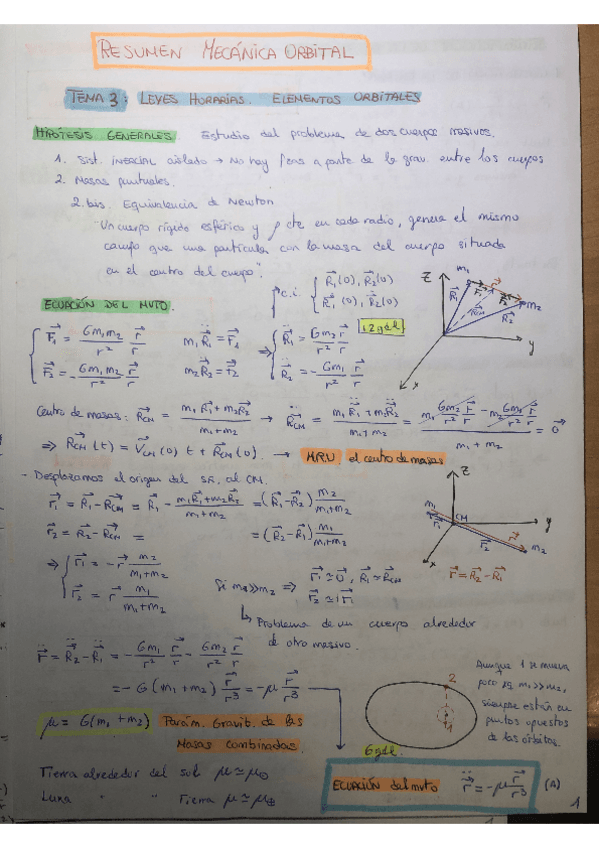 RESUMEN MECÁNICA ORBITAL
TEMA 3: LEYES HORARIAS. ELEMENTOS ORBITALES
HIPÓTESIS GENERALES Estudio del problema de dos cuerpos masivos.
1. Sist. INERCIAL aislado → No hay fzas a parte de la grav. entre los cuerpos
2. Masas puntuales.
2.bis. Equivalencia de Newton
"Un cuerpo rígido esférico y ρ cte en cada radio, genera el mismo
campo que una partícula con la masa del cuerpo situada
en el centro del cuerpo".
c.i. { R⃗₁(0), R⃗₂(0)
Ṙ⃗₁(0), Ṙ⃗₂(0)
ECUACIÓN DEL MVTO.
12 gdl
F⃗₁ = Gm₁m₂/r² r⃗/r m₁R̈⃗₁ = F⃗₁ ⇒ { R̈⃗₁ = Gm₂/r² r⃗/r
F⃗₂ = -Gm₁m₂/r² r⃗/r m₂R̈⃗₂ = F⃗₂ R̈⃗₂ = -Gm₁/r² r⃗/r
z m₁ R⃗₁ F⃗₁ r⃗ F⃗₂ m₂ R⃗CM R⃗₂ y x
Centro de masas: R⃗CM = m₁R⃗₁+m₂R⃗₂/m₁+m₂ → R̈⃗CM = m₁R̈⃗₁+m₂R̈⃗₂/m₁+m₂ = m₁ Gm₂/r² r⃗/r - m₂ Gm₁/r² r⃗/r / m₁+m₂ = 0⃗
⇒ R⃗CM(t) = V⃗CM(0) t + R⃗CM(0). → MRU el centro de masas
- Desplazamos el origen del SR, al CM.
r⃗₁ = R⃗₁ - R⃗CM = R⃗₁ - m₁R⃗₁+m₂R⃗₂/m₁+m₂ = (R⃗₁-R⃗₂) m₂/m₁+m₂
r⃗₂ = R⃗₂ - R⃗CM = = (R⃗₂-R⃗₁) m₁/m₁+m₂
z m₁ r⃗₁ CM r⃗ r⃗₂ m₂ y x
r⃗ = R⃗₂ - R⃗₁
⇒ { r⃗₁ = -r⃗ m₂/m₁+m₂
r⃗₂ = r⃗ m₁/m₁+m₂
Si m₁>>m₂ ⇒ r⃗₁ ≃ 0⃗, R⃗₁ ≃ R⃗CM
↳ Problema de un cuerpo alrededor
de otro masivo.
r̈⃗ = R̈⃗₂ - R̈⃗₁ = -Gm₁/r² r⃗/r - Gm₂/r² r⃗/r
= -G(m₁+m₂) r⃗/r³ = -μ r⃗/r³
2
1
Aunque 1 se mueva
poco pq m₁>>m₂,
siempre están en
puntos opuestos
de las órbitas.
μ = G(m₁+m₂) Parám. Gravit. de las
Masas combinadas.
6 gdl.
Tierra alrededor del sol μ ≃ μ⊙
Luna " " Tierra μ ≃ μ⊕
ECUACIÓN del mvto r̈⃗ = -μ r⃗/r³ (A)
1